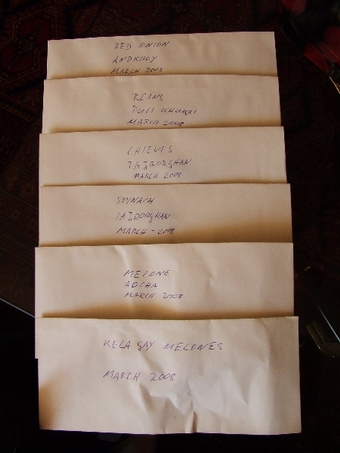 RED ONION
ANDKHOY
MARCH 2008
BEANS
PULI KHUMRI
MARCH 2008
CHIEVES
TAJQORGHAN
MARCH 2008
SPINACH
TAJQORGHAN
MARCH - 2008
MELONE
AQCHA
MARCH 2008
KELA GAY MELONES
MARCH 2008